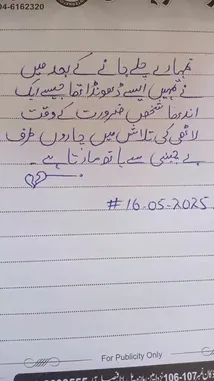 04-6162320
تمہارے چلے جانے کے بعد میں
نے تمہیں ایسے ڈھونڈا تھا جیسے ایک
اندھا شخص ضرورت کے وقت
لاٹھی کی تلاش میں چاروں طرف
بے چینی سے ہاتھ مارتا ہے۔
#16-05-2025
For Publicity Only
106-107